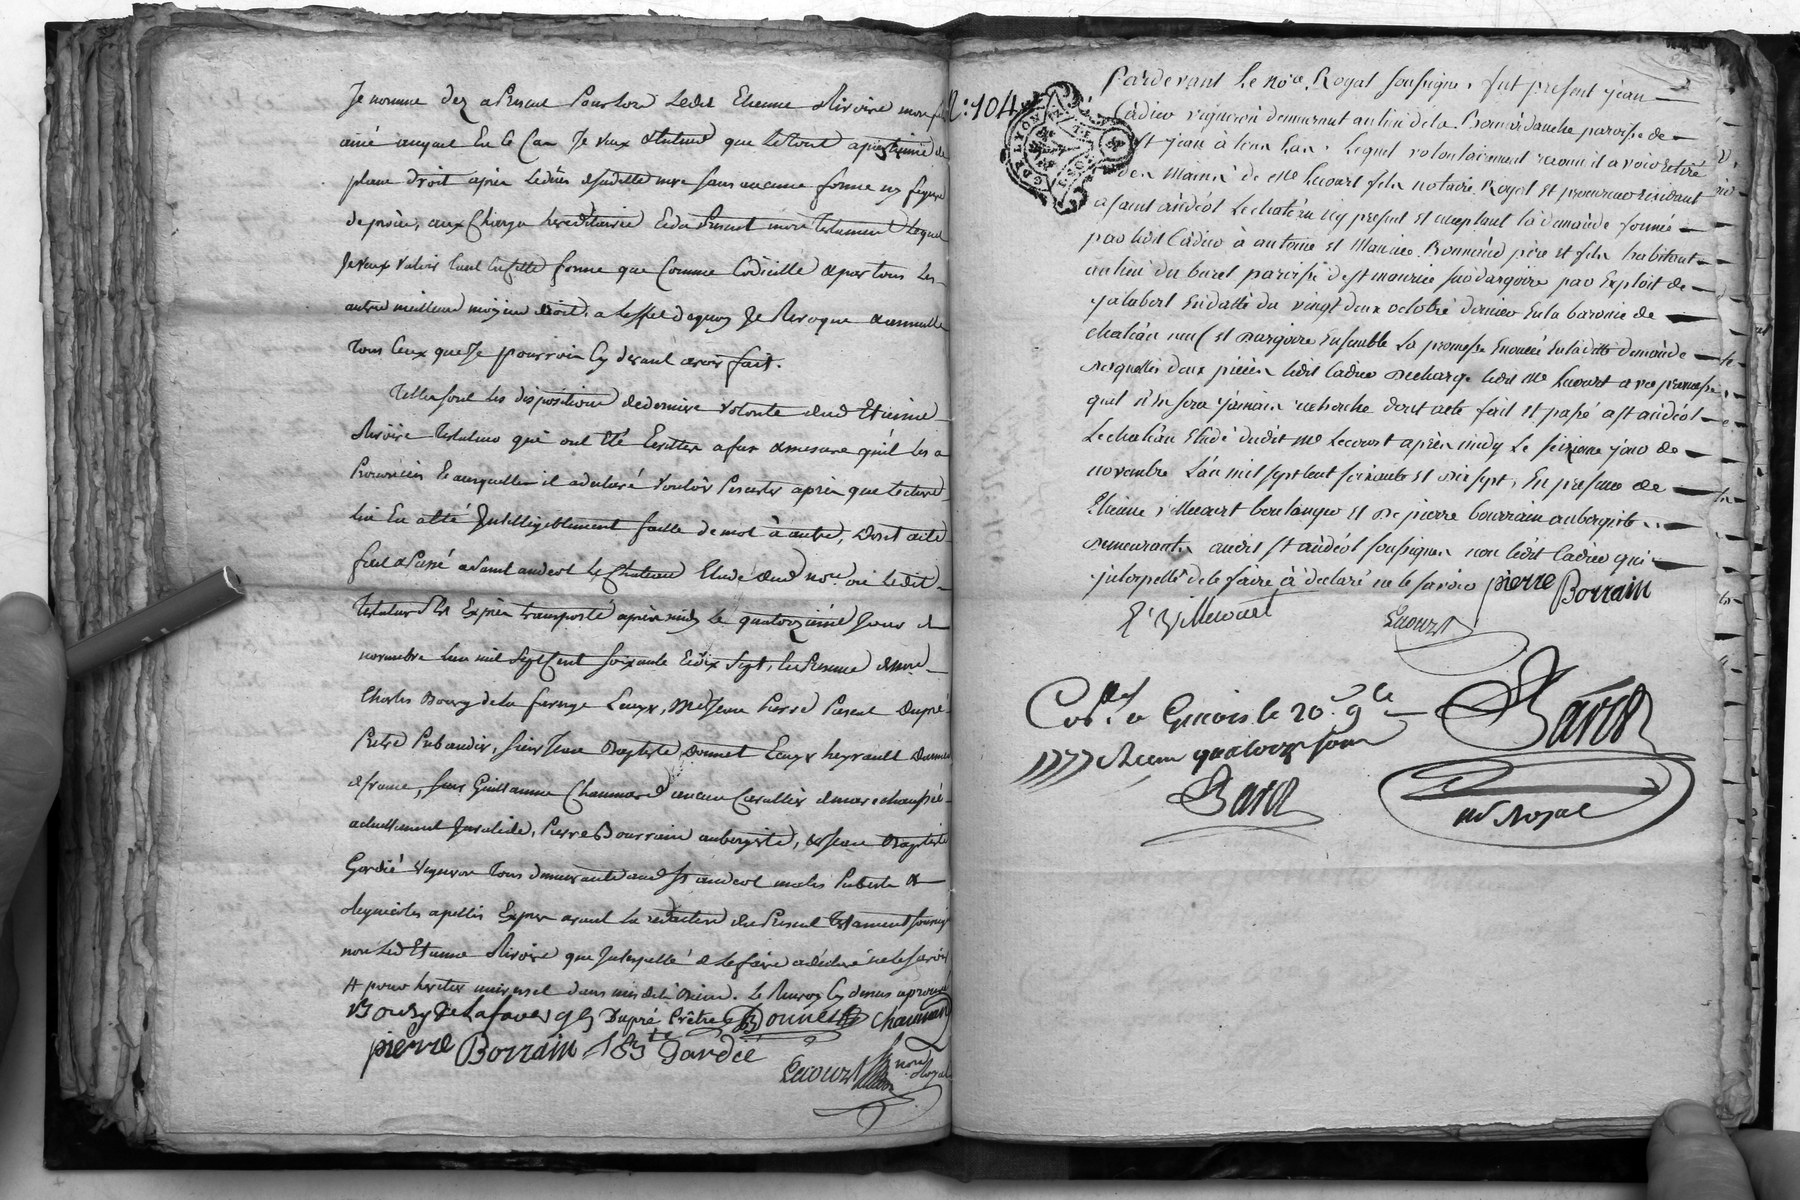 Je nomme dez a Présent Pour Lors Ledit Etienne Rivoire mon fils
ainé auquel En Ce Cas Je veux Entend que Letout
plain droit après Ledeces desaditte mere sans aucune forme ny figure
de procès, aux Charges hereditaires Et du Présent mon testament Lequel
Je veux valoir tant En cette forme que Comme Codicille & par tous Les
autre meilleur moyien droit, a Leffet dequoy Je Revoque & annulle
tous Ceux que Je Pourrois Cy devant avoir fait.
Telles sont Les dispositions de derniere volonté dud Etienne
Rivoire testateur qui ont Eté Ecrittes a fur & mesure quil Les a
Prononcées Et auxquelles il a declaré vouloir Persister après que Lecture
Luy En a Eté Intelligiblement faitte de mot à autre, Dont acte
fait & Passé a Saint andeol Le Chateau Etude dud no.re où Ledit
testateur S'Est Exprès transporté après midy Le quatorzième Jour de
novembre L'an mil Sept Cent Soixante Et dix Sept, En Presence de
Charles Bourg de la faverge Ecuyr, Me Jean Pierre Dupré
Prêtre Prebandier, Sieur Jean Baptiste Donnet
de france, Sieur Guillaume Chaumard ancien Cavallier de marechaussée
actuellement Invalide, Pierre Bourrain aubergiste, & Jean Baptiste
Gardié Vigneron tous demeurants aud St andeol
appellés Exprès avant la redaction du Present testament Soussignés
non Led Etienne Rivoire que Interpellé de le faire a declaré ne le Savoir
# pour heritier universel dans mes dits Biens. Le Renvoy Cy dessus aprouvé
Bourg de Lafaverge Dupré Prêtre Donnet Chaumard
pierre Borrain Bte Gardié
Lecourt nore Royal
N.° 104
G. DE LYON
Pardevant Le No.re Royal soussigné, fut présent jean
Cadier vigneron demeurant au lieu de la Bonnardanche paroisse de
St jean à tour Las, Lequel volontairement reconnoit avoir Retiré
des Mains de Me Lecourt fils notaire Royal Et procureur résidant
a saint andéol Lechatéau icy présent Et acceptant la demande formée
par ledit Cadier à antoine Et Maurice Bonnand père Et fils habitant
au lieu du buret paroisse de st maurice sur dargoire par Exploit de
jalabert En datte du vingt deux octobre dernier En la baronie de
chatéau neuf Et dargoire Ensemble La promesse Enoncée En ladite demande
desquelles deux pièces ledit Cadier décharge ledit Me Lecourt avec promesse
quil n'En sera jamais recherché dont acte fait Et passé a st andéol
Lechatéau Etude dudit Me Lecourt après midy Le seizieme jour de
novembre L'an mil sept cent soixante Et dix sept, En présence de
Etienne villecourt boulanger Et de pierre bourrain aubergiste
demeurants audit st andéol soussignés non ledit Cadier qui
interpellé de le faire a déclaré ne le savoir pierre Borrain
E. Villecourt Lecourt
Con.lé a Givors le 20. 9bre
1777 Recu quatorze sous
Barou
Barou
no. Royal